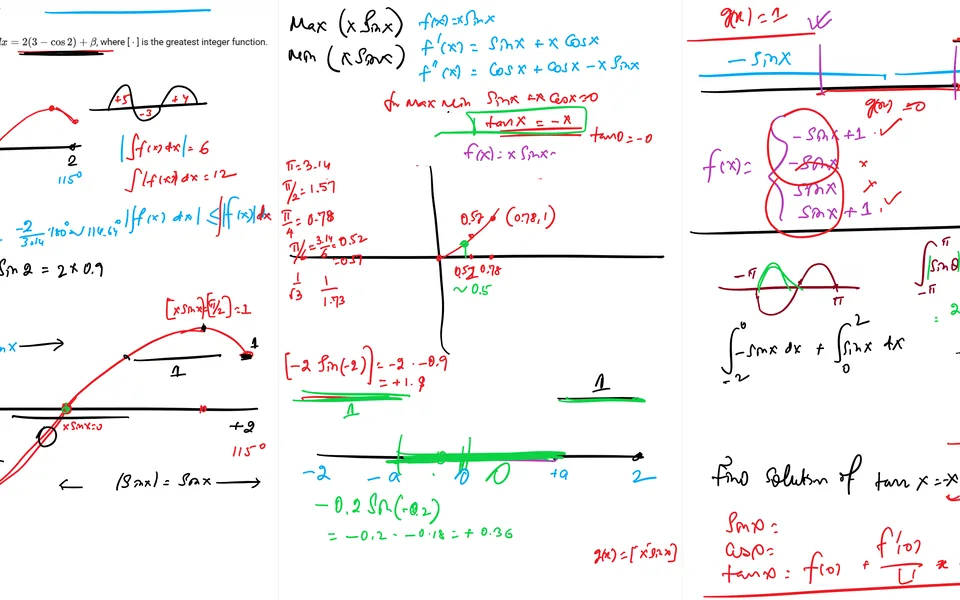 dx = 2(3 − cos 2) + β, where [ · ] is the greatest integer function.
+5
-3
+4
|∫f(x)dx| = 6
∫|f(x)|dx = 12
2
115°
-2/3.14 × 180° ≈ 114.64°
|∫f(x) dx| ≤ ∫|f(x)|dx
Sin 2 = 2 × 0.9
[x sinx] = [π/2] = 1
1
1
x sinx = 0
+2
115°
|Sinx| = Sinx
Max (x Sinx)
Min (x Sinx)
f(x) = x Sinx
f'(x) = Sinx + x Cosx
f''(x) = Cosx + Cosx − x Sinx
for max min Sinx + x Cosx = 0
tanx = -x
tan0 = -0
f(x) = x Sinx
π = 3.14
π/2 = 1.57
π/4 = 0.78
π/6 = 3.14/6 = 0.52
0.57
1/√3 1/1.73
0.52
(0.78, 1)
0.52 0.78
~0.5
[-2 Sin(-2)] = -2 · -0.9
= +1.8
1
1
-2 -a 0 0 +a 2
-0.2 Sin(-0.2)
= -0.2 · -0.18 = +0.36
g(x) = [x sinx]
g(x) = 1
- Sinx
g(x) = 0
f(x) =
- Sinx + 1 ✓
- Sinx ×
Sinx ×
Sinx + 1 ✓
-π π
∫-π^π |Sinθ
= 2
∫-2^0 -Sinx dx + ∫0^2 Sinx dx
Find solution of tanx = -x
Sinx =
Cosx =
tanx = f(0) + f'(0)/1! x